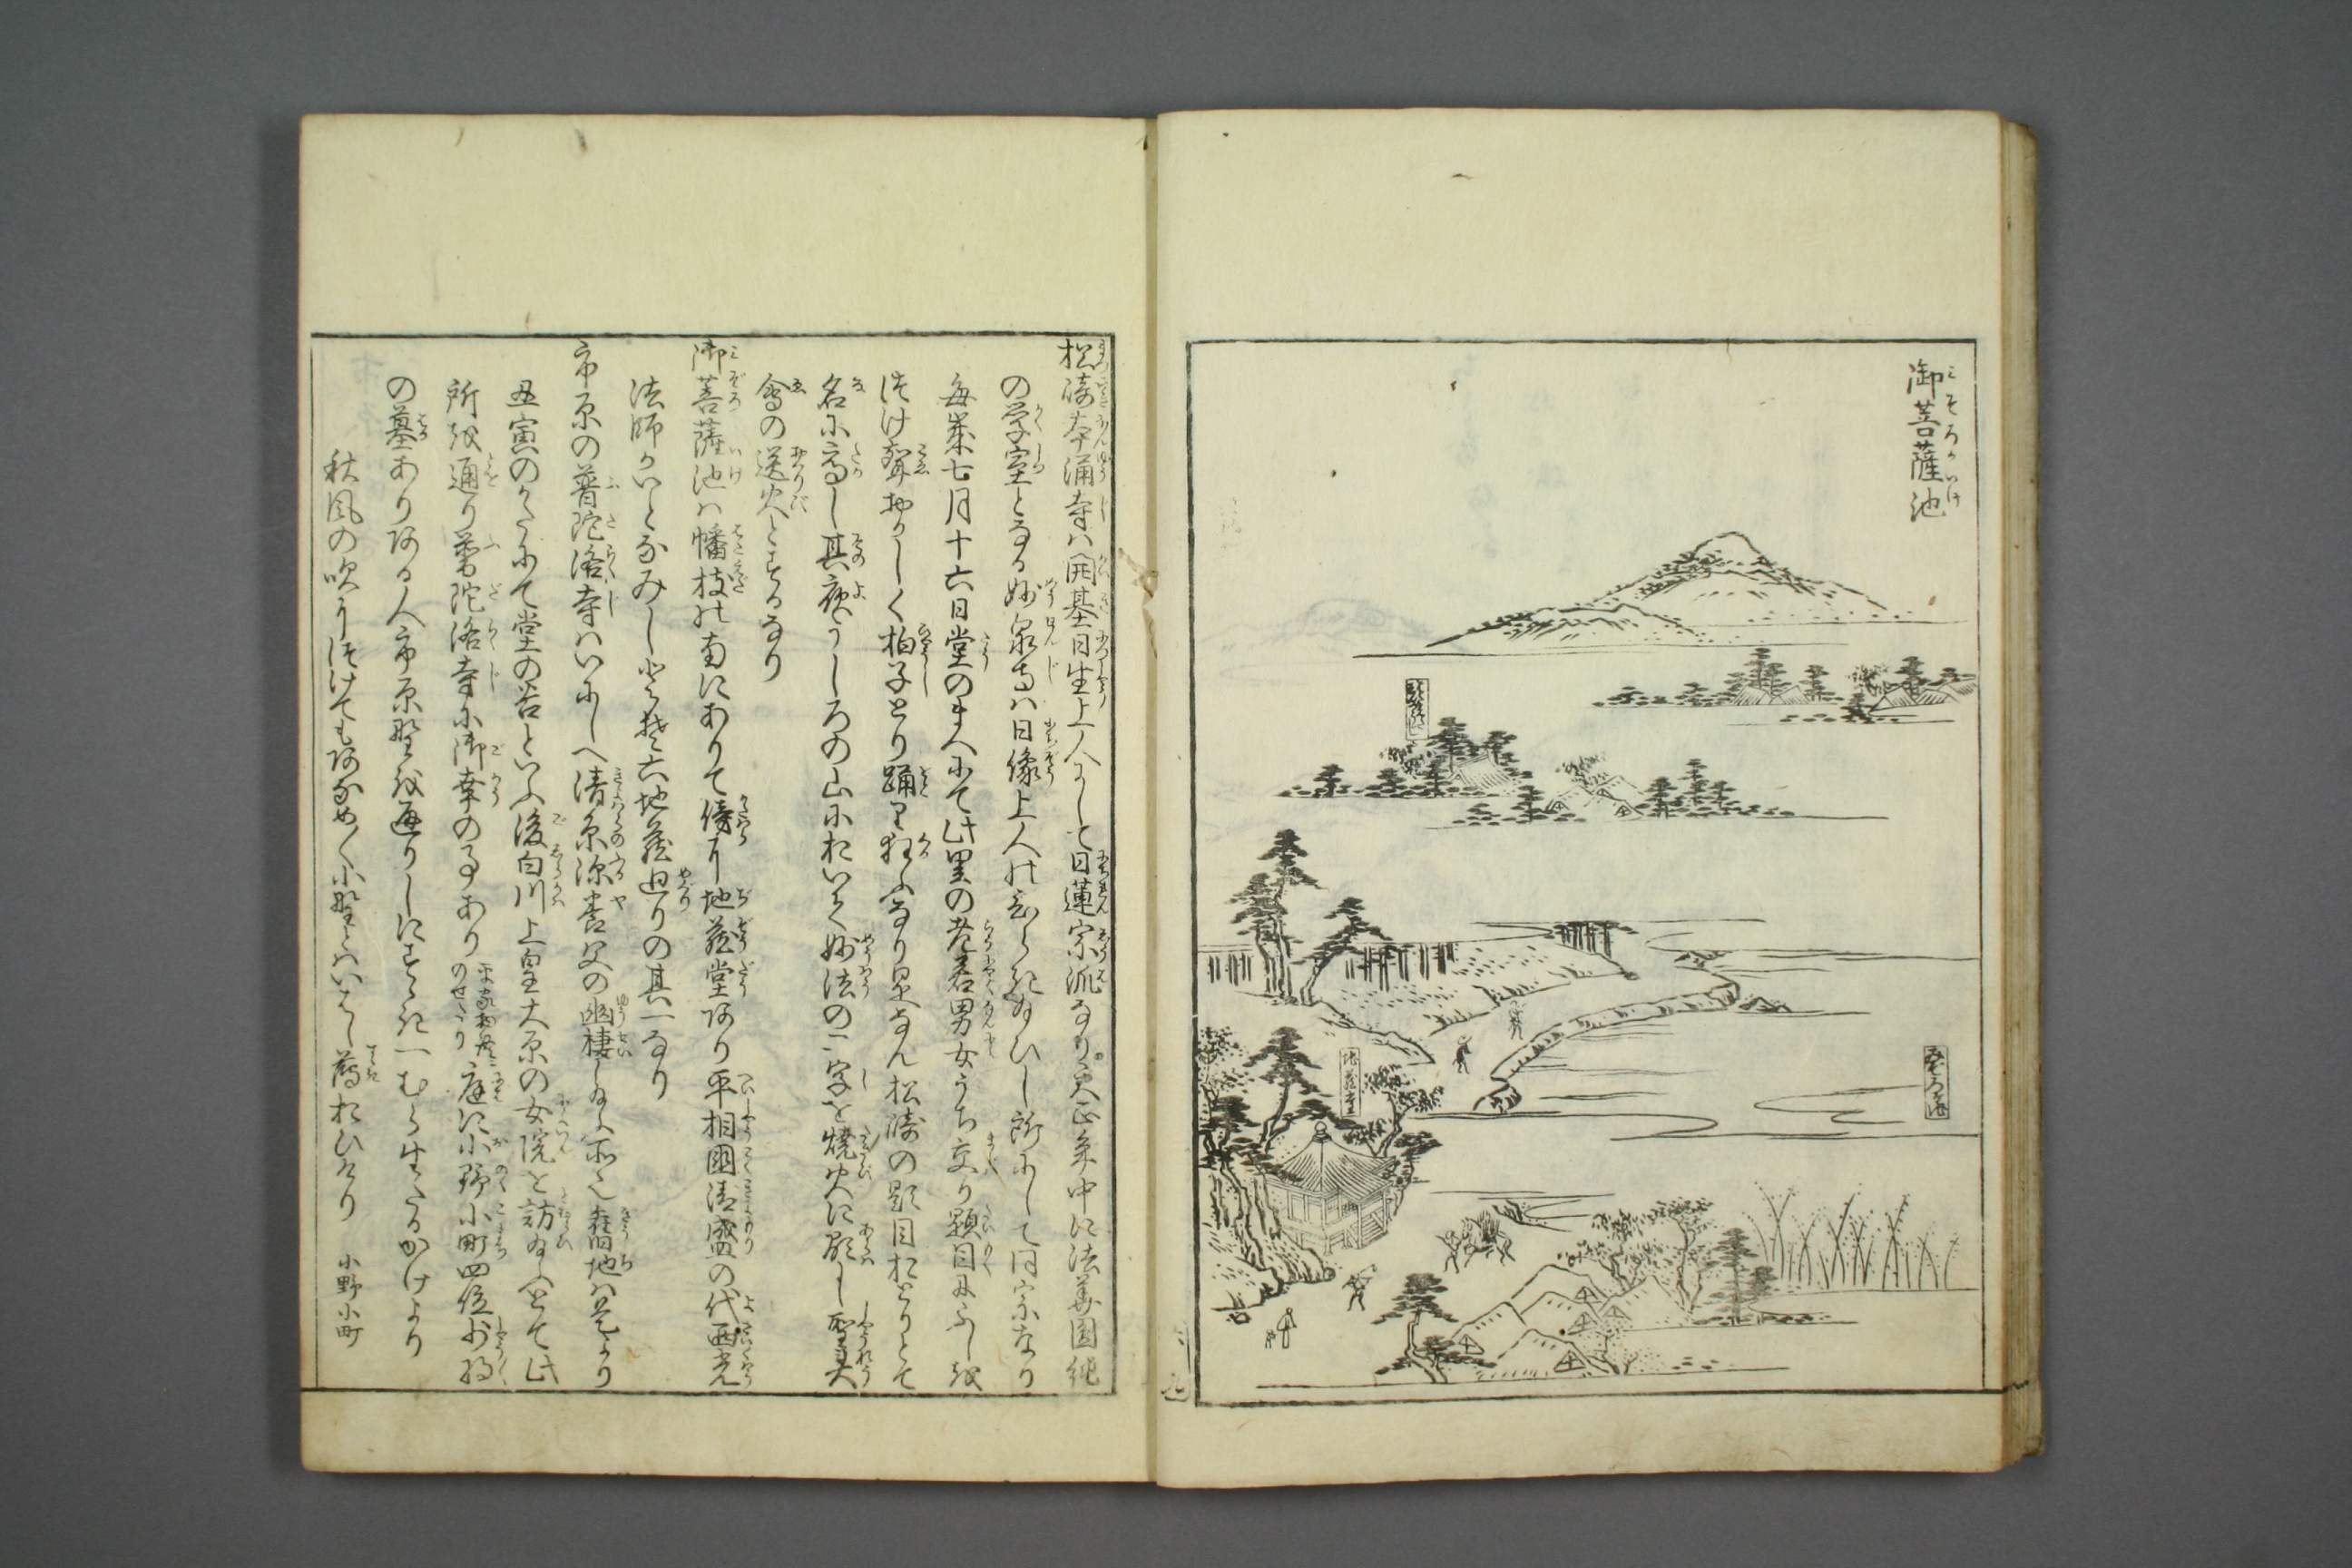 御菩薩池
みぞろいけ
地蔵堂
みぞろ池
松崎本涌寺は開基日生上人にして日蓮宗派なり天正年中に法華圓純
の学室となる妙泉寺は日像上人の
所にして同宗なり
毎歳七月十六日堂のまへにて此里の老若男女うち交り題目にふしを
つけ聲おかしく拍子とり踊り狂ふなり是なん松崎の題目おどりとて
名に高し其夜うしろの山において妙法の二字を焼火に顕し聖霊
會の送火とするなり
御菩薩池は幡枝の南にありて傍に地蔵堂あり平相國清盛の代西光
法師がいとなみし
六地蔵廻りの其一なり
市原の普陀洛寺はいにしへ清原深養父の幽棲し給ふ所也舊地は是より
丑寅のかたにて堂の谷といふ後白川上皇大原の女院を訪給ふとて此
所を通り普陀洛寺に御幸の事あり
平家物語に
のせたり
庭に小野小町四位少将
の墓ありある人市原野を通りしにすゝき一むら生たるかげより
秋風の吹につけてもあなめ〱小野とはいはし薄おひけり
小野小町